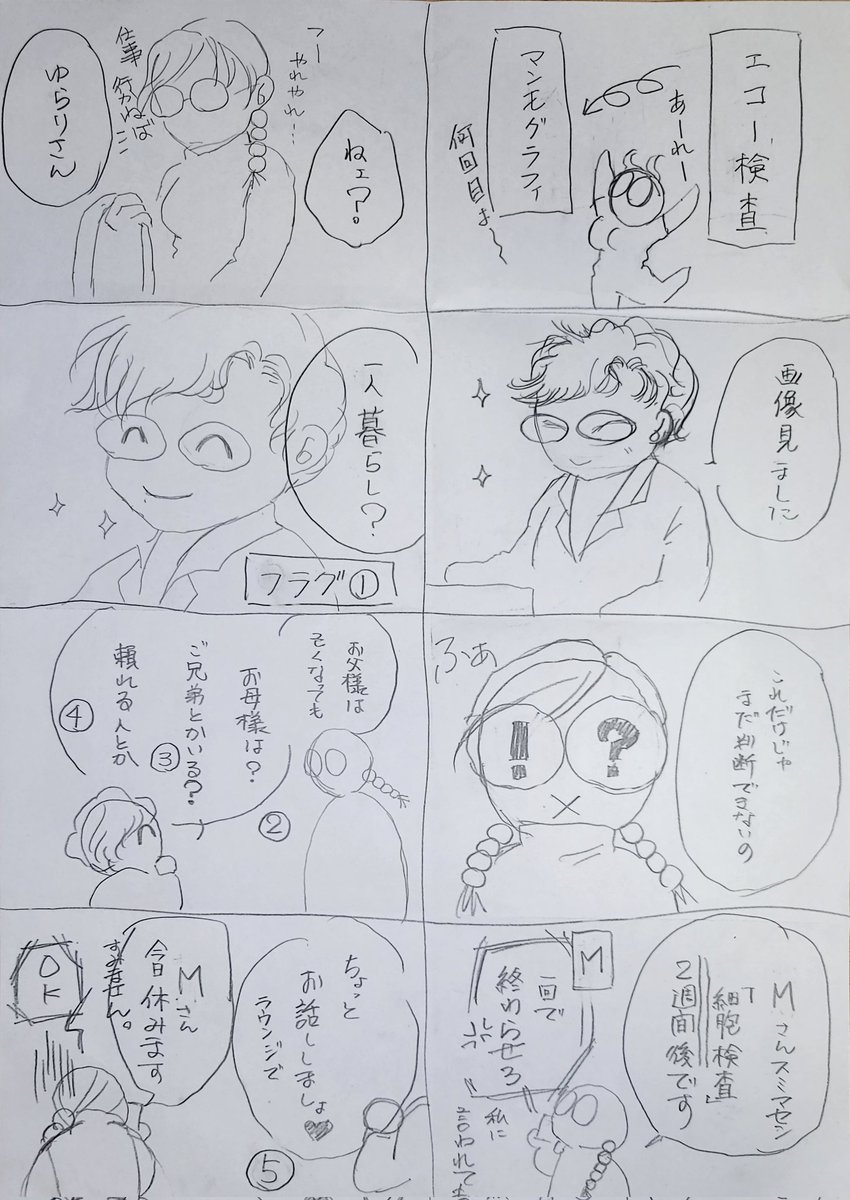 エコー検査
あーれー
マンモグラフィ
何回目よ
画像見ました
これだけじゃ
まだ判断できないの
ふぁ
!
?
Mさんスミマセン
「細胞検査」
2週間後です
M
一回で
終わらせろ
私に
言われても
ねェ?。
つー
やれやれ…
仕事行かねば
ゆらりさん
一人暮らし?
フラグ①
お父様は
そくなっても
お母様は?
ご兄弟とかいる?
頼れる人とか
②
③
④
ちょっと
お話ししましょ♥
ラウンジで
⑤
Mさん
今日休みます
すみません。
OK